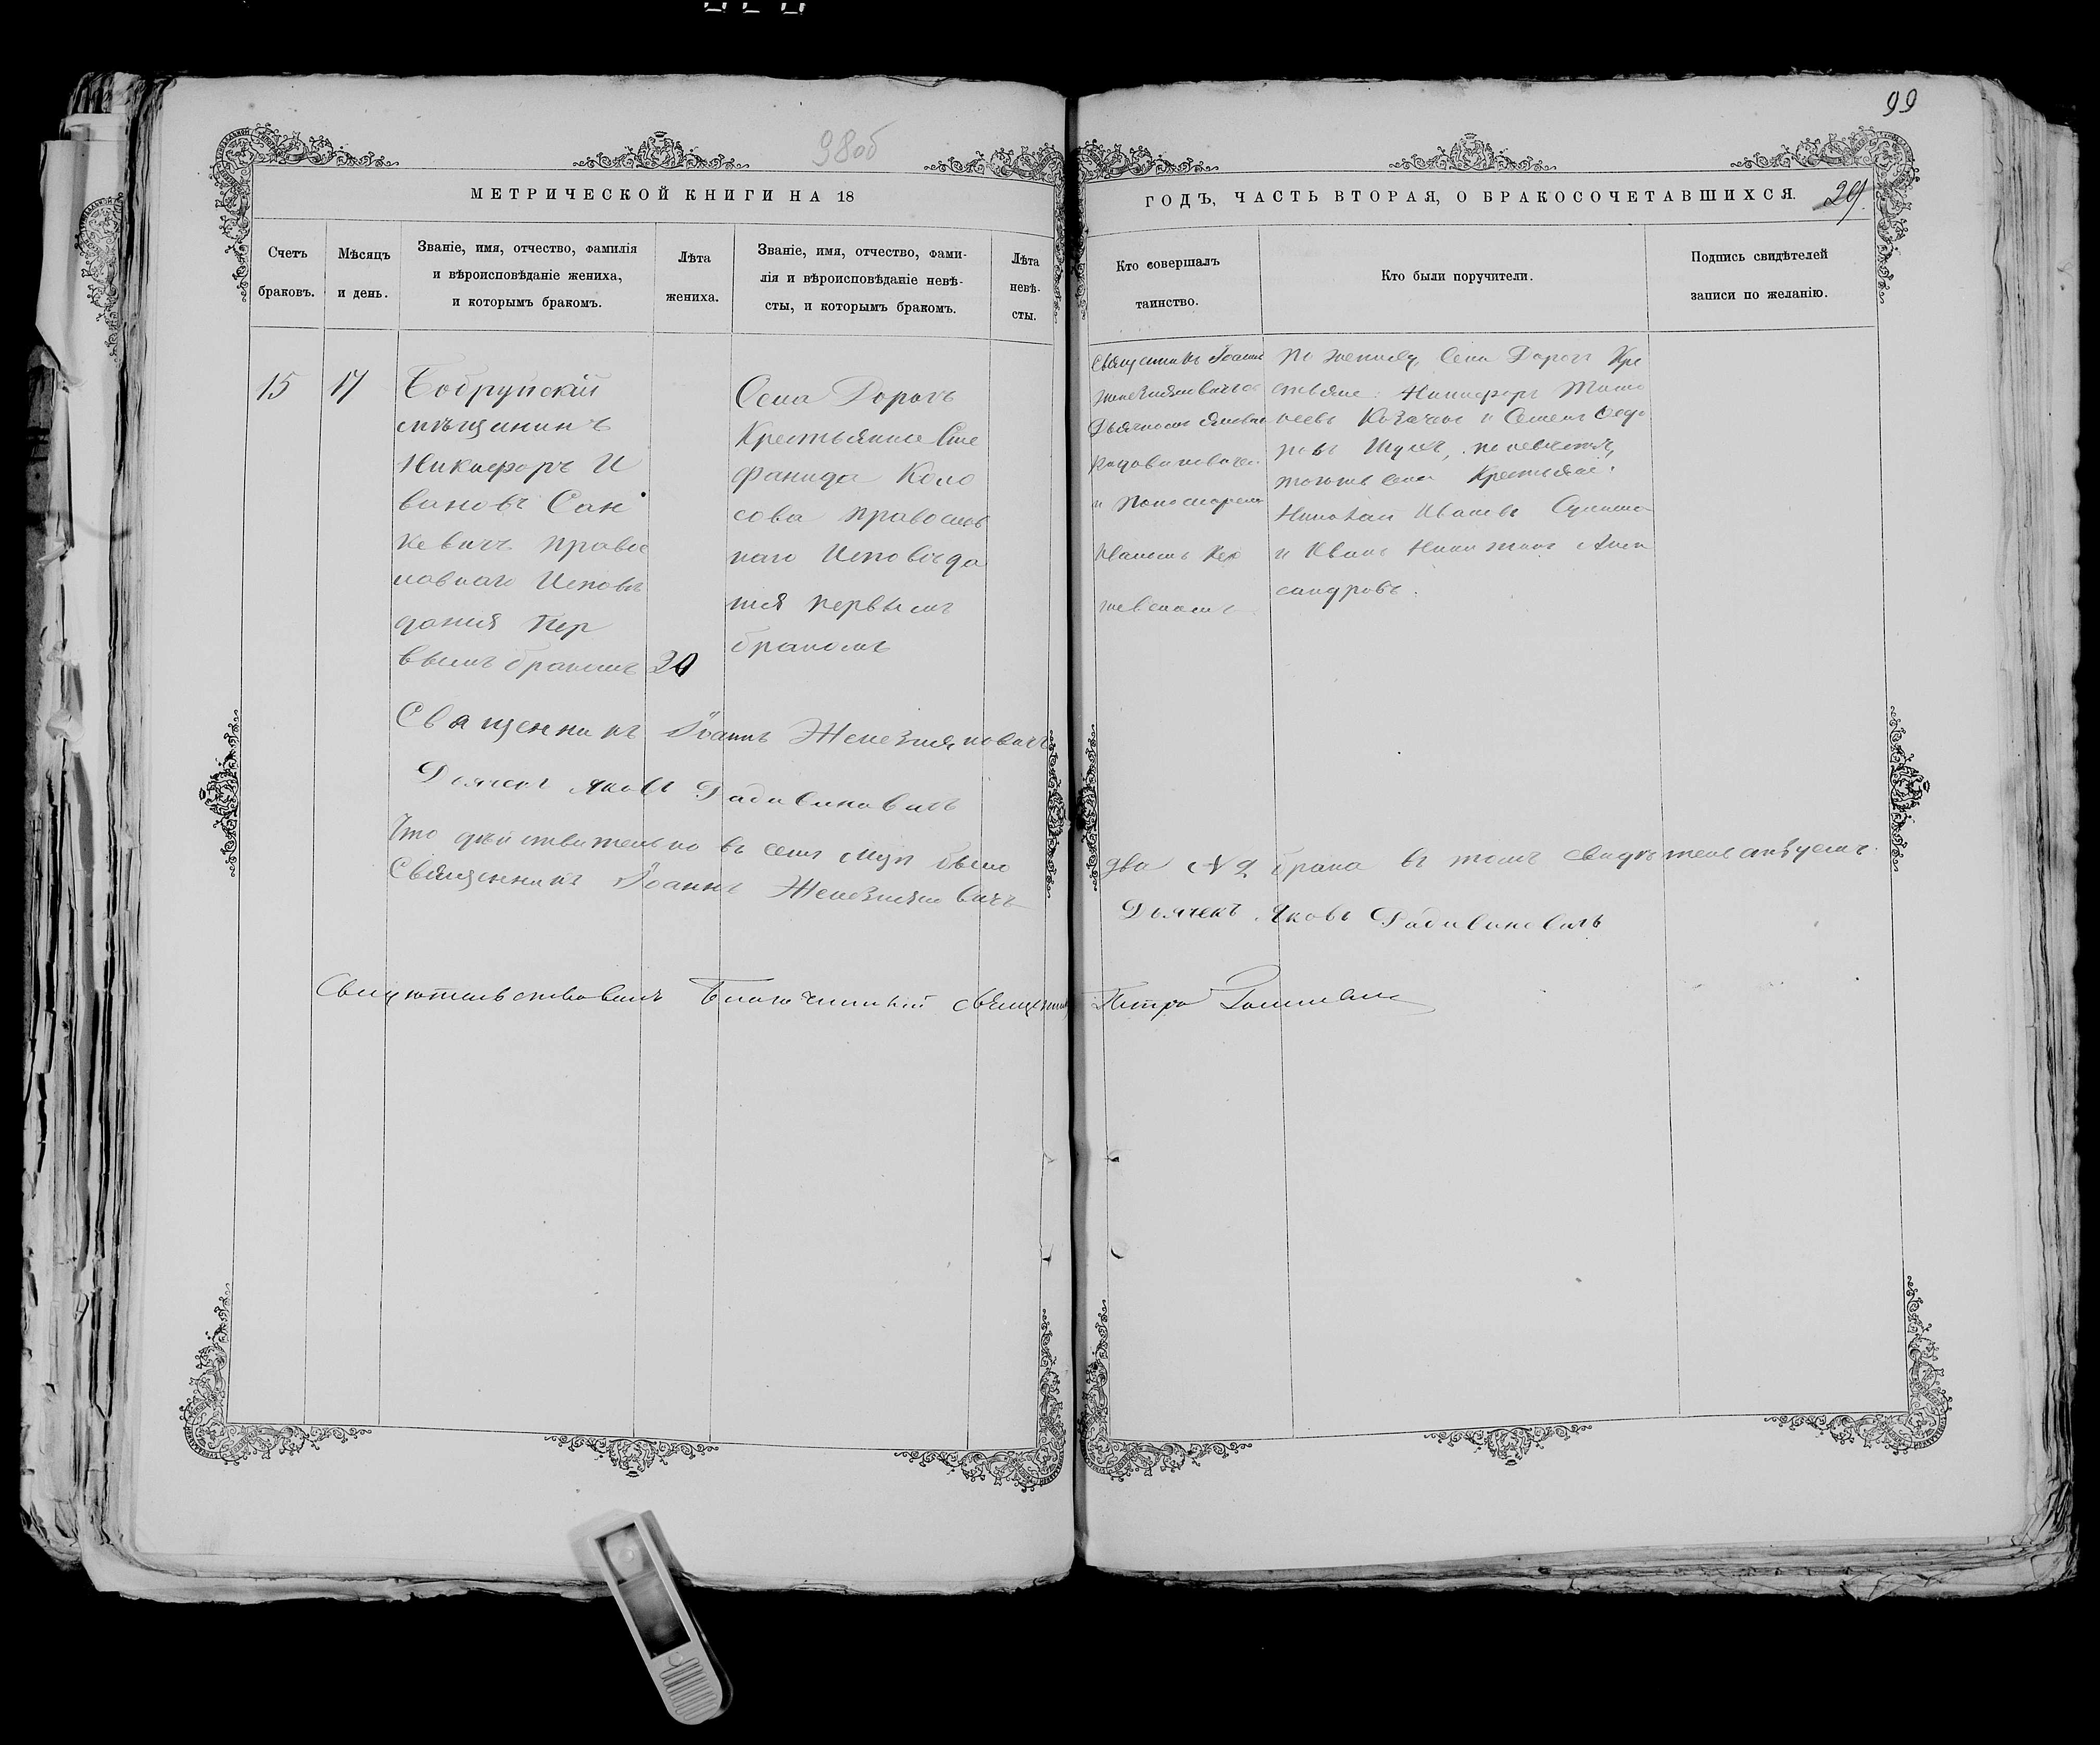 99
98об
МЕТРИЧЕСКОЙ КНИГИ НА 18
ГОДЪ, ЧАСТЬ ВТОРАЯ, О БРАКОСОЧЕТАВШИХСЯ.
29.
Счетъ
браковъ.
Мѣсяцъ
и день.
Званіе, имя, отчество, фамилія
и вѣроисповѣданіе жениха,
и которымъ бракомъ.
Лѣта
жениха.
Званіе, имя, отчество, фами-
лія и вѣроисповѣданіе невѣ-
сты, и которымъ бракомъ.
Лѣта
невѣ-
сты.
Кто совершалъ
таинство.
Кто были поручители.
Подпись свидѣтелей
записи по желанію.
15
17
Бобруйскій
мѣщанинъ
Никифоръ И
вановъ Сан
кевичъ правос
лавнаго Исповѣ
данія пер
вымъ бракомъ
20
Села Дорогъ
Крестьянка Сте
фанида Коло
сова православ
наго Исповѣда
нія первымъ
бракомъ
Священникъ Іоаннъ
Дьячкомъ
и Пономаремъ
Иваномъ
по жениху, Села Дорогъ Кре
стьяне: Никифоръ Тимо
ѳеевъ и Семенъ Ѳедо
ровъ по невѣстѣ,
тогоже села Крестьяне:
Николай Ивановъ
и Иванъ Алек
сандровъ.
Священникъ Іоаннъ Железняковичъ
Дьячекъ Яковъ Радивиновичъ
Что дѣйствительно въ семъ м-цѣ было
два № 2 брака въ томъ свидѣтельствуемъ.
Священникъ Іоаннъ Железняковичъ
Дьячекъ Яковъ Радивиновичъ
Свидѣтельствовалъ Благочинный священникъ
Петръ